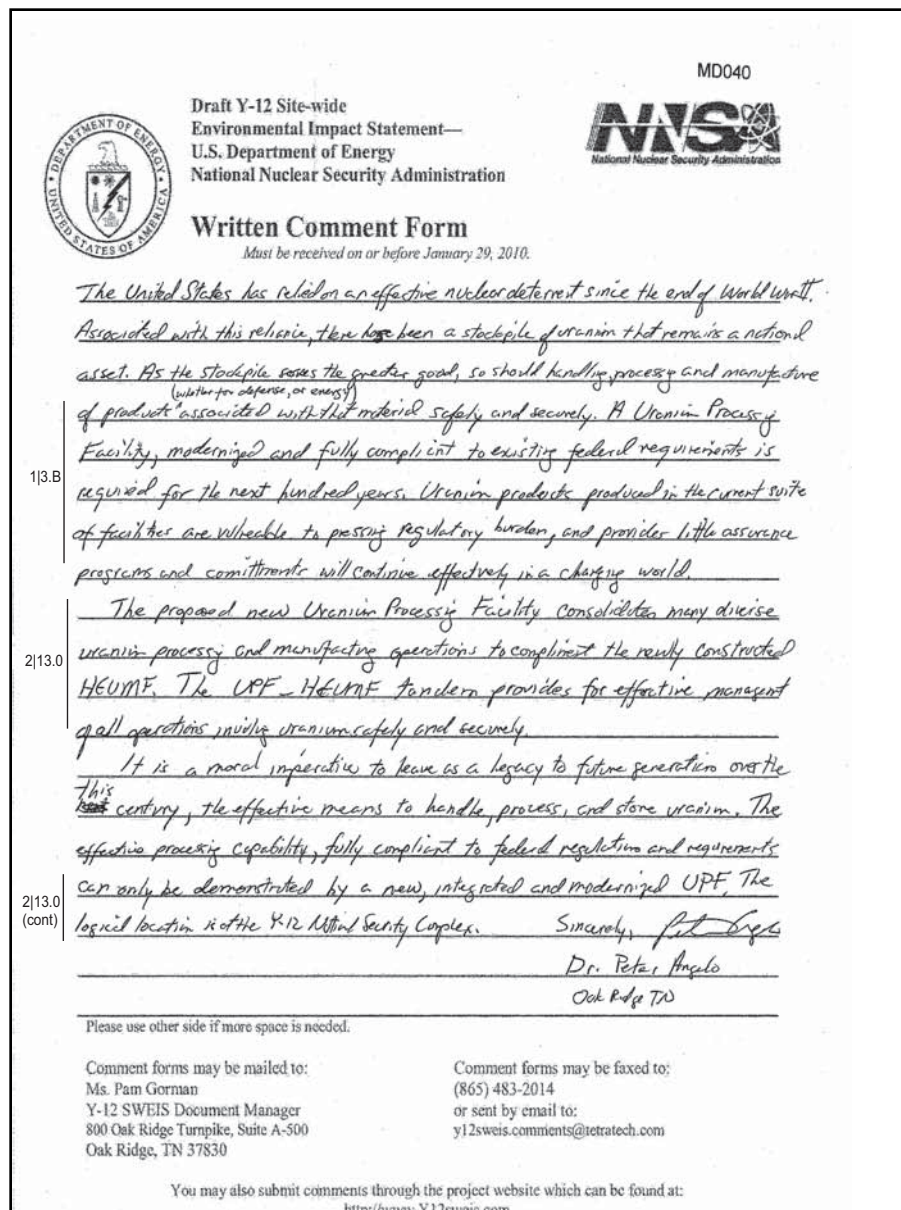 MD040
Draft Y-12 Site-wide
Environmental Impact Statement—
U.S. Department of Energy
National Nuclear Security Administration
DEPARTMENT OF ENERGY
UNITED STATES OF AMERICA
NNSA
National Nuclear Security Administration
Written Comment Form
Must be received on or before January 29, 2010.
The United States has relied on an effective nuclear deterrent since the end of World War II.
Associated with this reliance, there has been a stockpile of uranium that remains a national
asset. As the stockpile serves the greater good, so should handling, process and manufacture
(whether for defense, or energy)
of products associated with that material safely and securely. A Uranium Processing
1|3.B
Facility, modernized and fully compliant to existing federal requirements is
required for the next hundred years. Uranium products produced in the current suite
of facilities are vulnerable to pressing regulatory burden, and provides little assurance
programs and comittments will continue effectively in a changing world.
The proposed new Uranium Processing Facility consolidates many diverse
2|13.0
uranium processing and manufacturing operations to compliment the newly constructed
HEUMF. The UPF-HEUMF tandem provides for effective managent
of all operations involving uranium safely and securely.
It is a moral imperative to leave as a legacy to future generations over the
this
century, the effective means to handle, process, and store uranium. The
effective processing capability, fully compliant to federal regulations and requirements
2|13.0
(cont)
can only be demonstrated by a new, integrated and modernized UPF. The
logical location is at the Y-12 National Security Complex. Sincerely,
Dr. Peter Angelo
Oak Ridge TN
Please use other side if more space is needed.
Comment forms may be mailed to:
Ms. Pam Gorman
Y-12 SWEIS Document Manager
800 Oak Ridge Turnpike, Suite A-500
Oak Ridge, TN 37830
Comment forms may be faxed to:
(865) 483-2014
or sent by email to:
y12sweis.comments@tetratech.com
You may also submit comments through the project website which can be found at:
http://www.Y12sweis.com